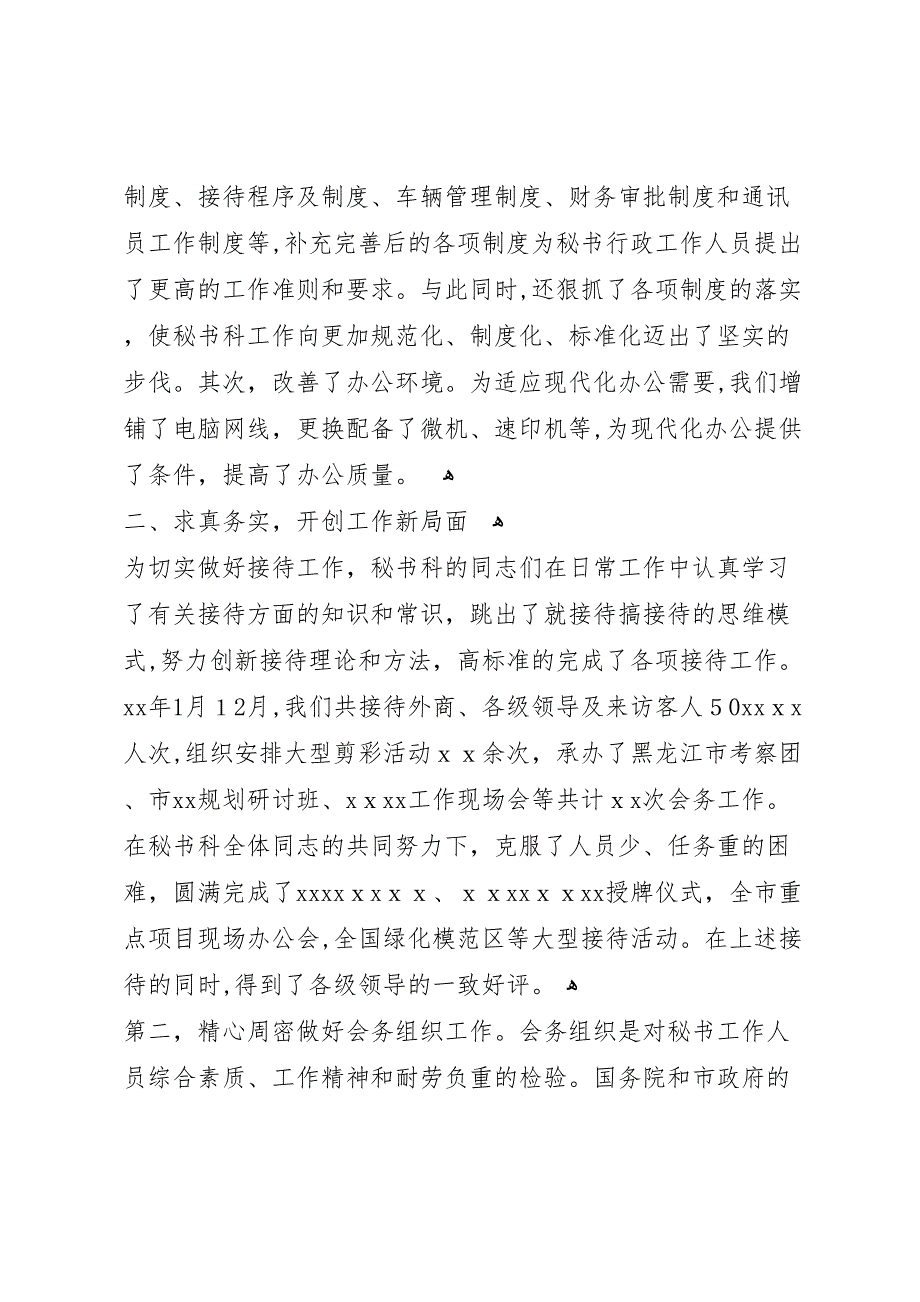 制度、接待程序及制度、车辆管理制度、财务审批制度和通讯
员工作制度等,补充完善后的各项制度为秘书行政工作人员提出
了更高的工作准则和要求。与此同时,还狠抓了各项制度的落实
，使秘书科工作向更加规范化、制度化、标准化迈出了坚实的
步伐。其次，改善了办公环境。为适应现代化办公需要,我们增
铺了电脑网线，更换配备了微机、速印机等,为现代化办公提供
了条件，提高了办公质量。 ﻬ
二、求真务实，开创工作新局面 ﻬ
为切实做好接待工作，秘书科的同志们在日常工作中认真学习
了有关接待方面的知识和常识，跳出了就接待搞接待的思维模
式,努力创新接待理论和方法，高标准的完成了各项接待工作。
xx年1月１2月,我们共接待外商、各级领导及来访客人５0xxｘx
人次,组织安排大型剪彩活动ｘｘ余次，承办了黑龙江市考察团
、市xx规划研讨班、xｘxx工作现场会等共计ｘx次会务工作。
在秘书科全体同志的共同努力下，克服了人员少、任务重的困
难，圆满完成了xxxxｘxｘｘ、ｘｘxxｘｘxx授牌仪式，全市重
点项目现场办公会,全国绿化模范区等大型接待活动。在上述接
待的同时,得到了各级领导的一致好评。 ﻬ
第二，精心周密做好会务组织工作。会务组织是对秘书工作人
员综合素质、工作精神和耐劳负重的检验。国务院和市政府的